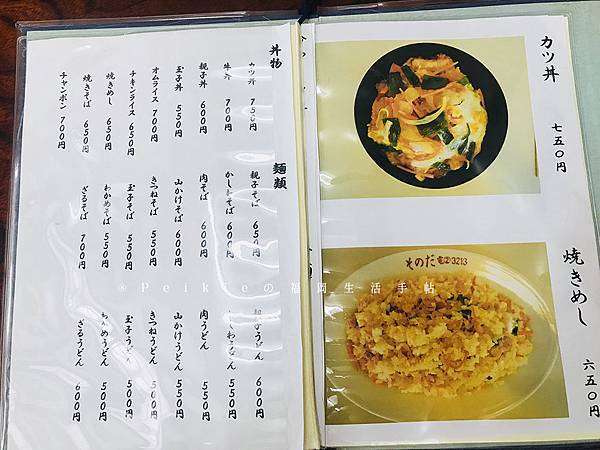 丼物
カツ丼 750円
牛丼 700円
親子丼 600円
玉子丼 550円
オムライス 700円
チキンライス 650円
焼きめし 650円
焼きそば 650円
チャンポン 700円
麺類
親子そば 650円
かしわそば 600円
肉そば 600円
山かけそば 600円
きつねそば 550円
玉子そば 550円
わかめそば 550円
ざるそば 700円
親子うどん 600円
かしわうどん 550円
肉うどん 550円
山かけうどん 550円
きつねうどん 500円
玉子うどん 500円
わかめうどん 500円
ざるうどん 600円
カツ丼 七五〇円
そのだ ☎②3213
焼きめし 六五〇円
®Peikieの福岡生活手帖